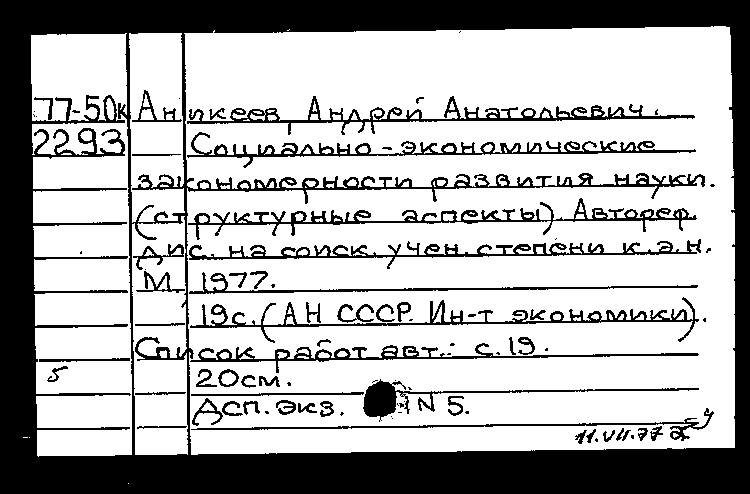 77-50к Аникеев, Андрей Анатольевич.
2293 Социально-экономические
закономерности развития науки.
(структурные аспекты). Автореф.
дис. на соиск. учен. степени к.э.н.
М. 1977.
19с. (АН СССР. Ин-т экономики).
Список работ авт.: с.19.
5 20см.
Дсп. экз. N 5.
11.VII.77